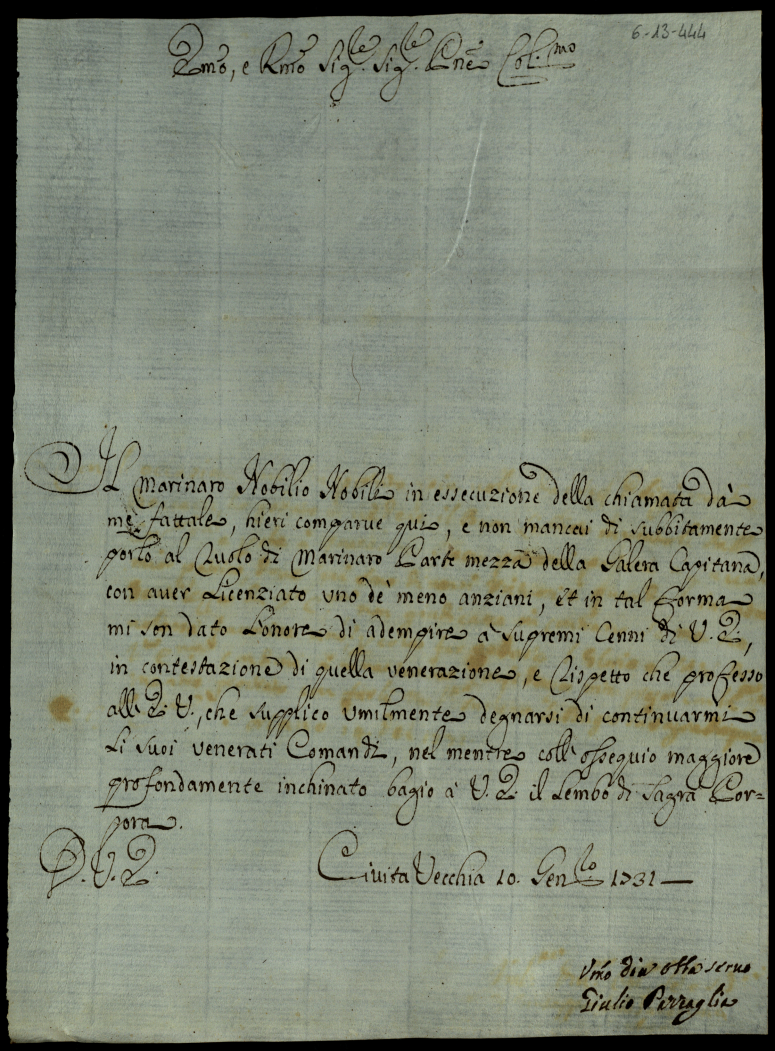 6-13-444
Emo, e Rmo Sig.re Sig.re Pne Col.mo
Il Marinaro Nobilio Nobili in essecuzione della chiamata dà
me fattale, hieri comparve qui, e non mancai di subbitamente
porlo al Ruolo di Marinaro Parte mezza della Galera Capitana,
con aver Licenziato uno de' meno anziani, et in tal forma
mi son dato l'onore di adempire a' supremi Cenni di V. E.,
in contestazione di quella venerazione, e Rispetto che professo
all' E. V., che supplico umilmente degnarsi di continuarmi
li suoi venerati Comandi, nel mentre coll' ossequio maggiore
profondamente inchinato bagio à V. E. il Lembo di Sagra Por=
pora.
D. V. E.
Civita Vecchia 10. Gen.ro 1731
Vmo servo
Giulio Pazzaglia